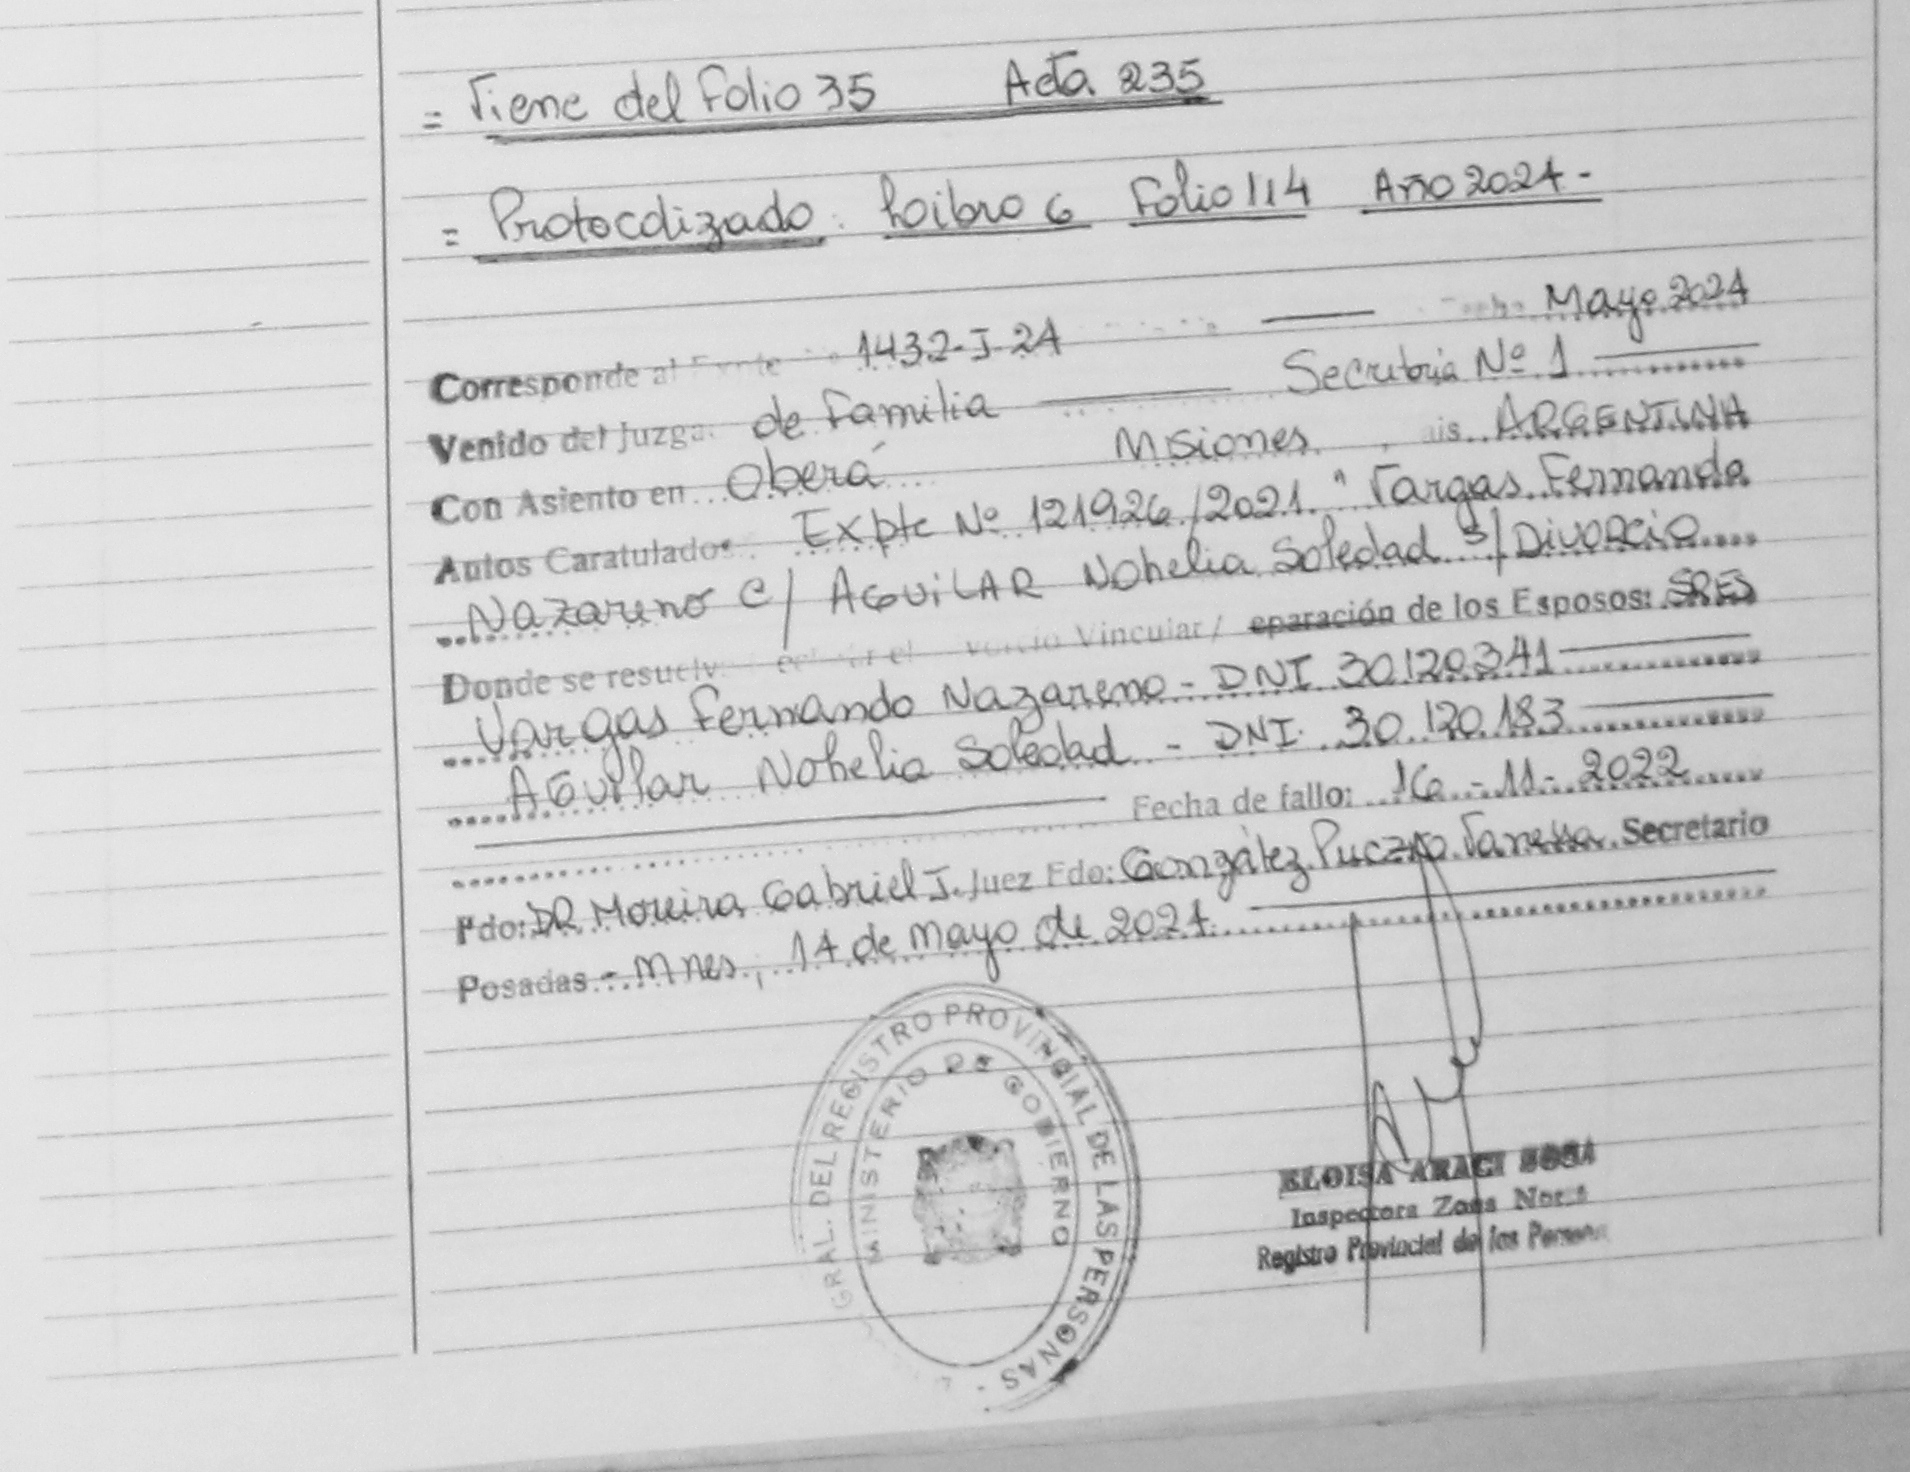 = Viene del Folio 35 Acta 235
= Protocolizado: Libro 6 Folio 114 Año 2024-
Corresponde al Expte 1432-J-24 Mayo 2024
Venido del Juzga. de Familia Secretaria Nº 1
Con Asiento en Oberá Misiones, ais ARGENTINA
Autos Caratulados: Expte Nº 121926/2021 "Vargas Fernando
Nazareno c/ AGUILAR Nohelia Soledad s/ Divorcio
Donde se resuelv el Vincular/ eparación de los Esposos: SRES
Vargas Fernando Nazareno - DNI 30.120.341
AGuilar Nohelia Soledad - DNI. 30.120.183
Fecha de fallo: 16-11-2022
Fdo: DR Moreira Gabriel J. Juez Fdo: González Vanessa Secretario
Posadas - Mnes, 14 de Mayo de 2024
GRAL. DEL REGISTRO PROVINCIAL DE LAS PERSONAS -
MINISTERIO DE GOBIERNO
ELOISA ARACI SOSA
Inspectora Zona Norte
Registro Provincial de las Person